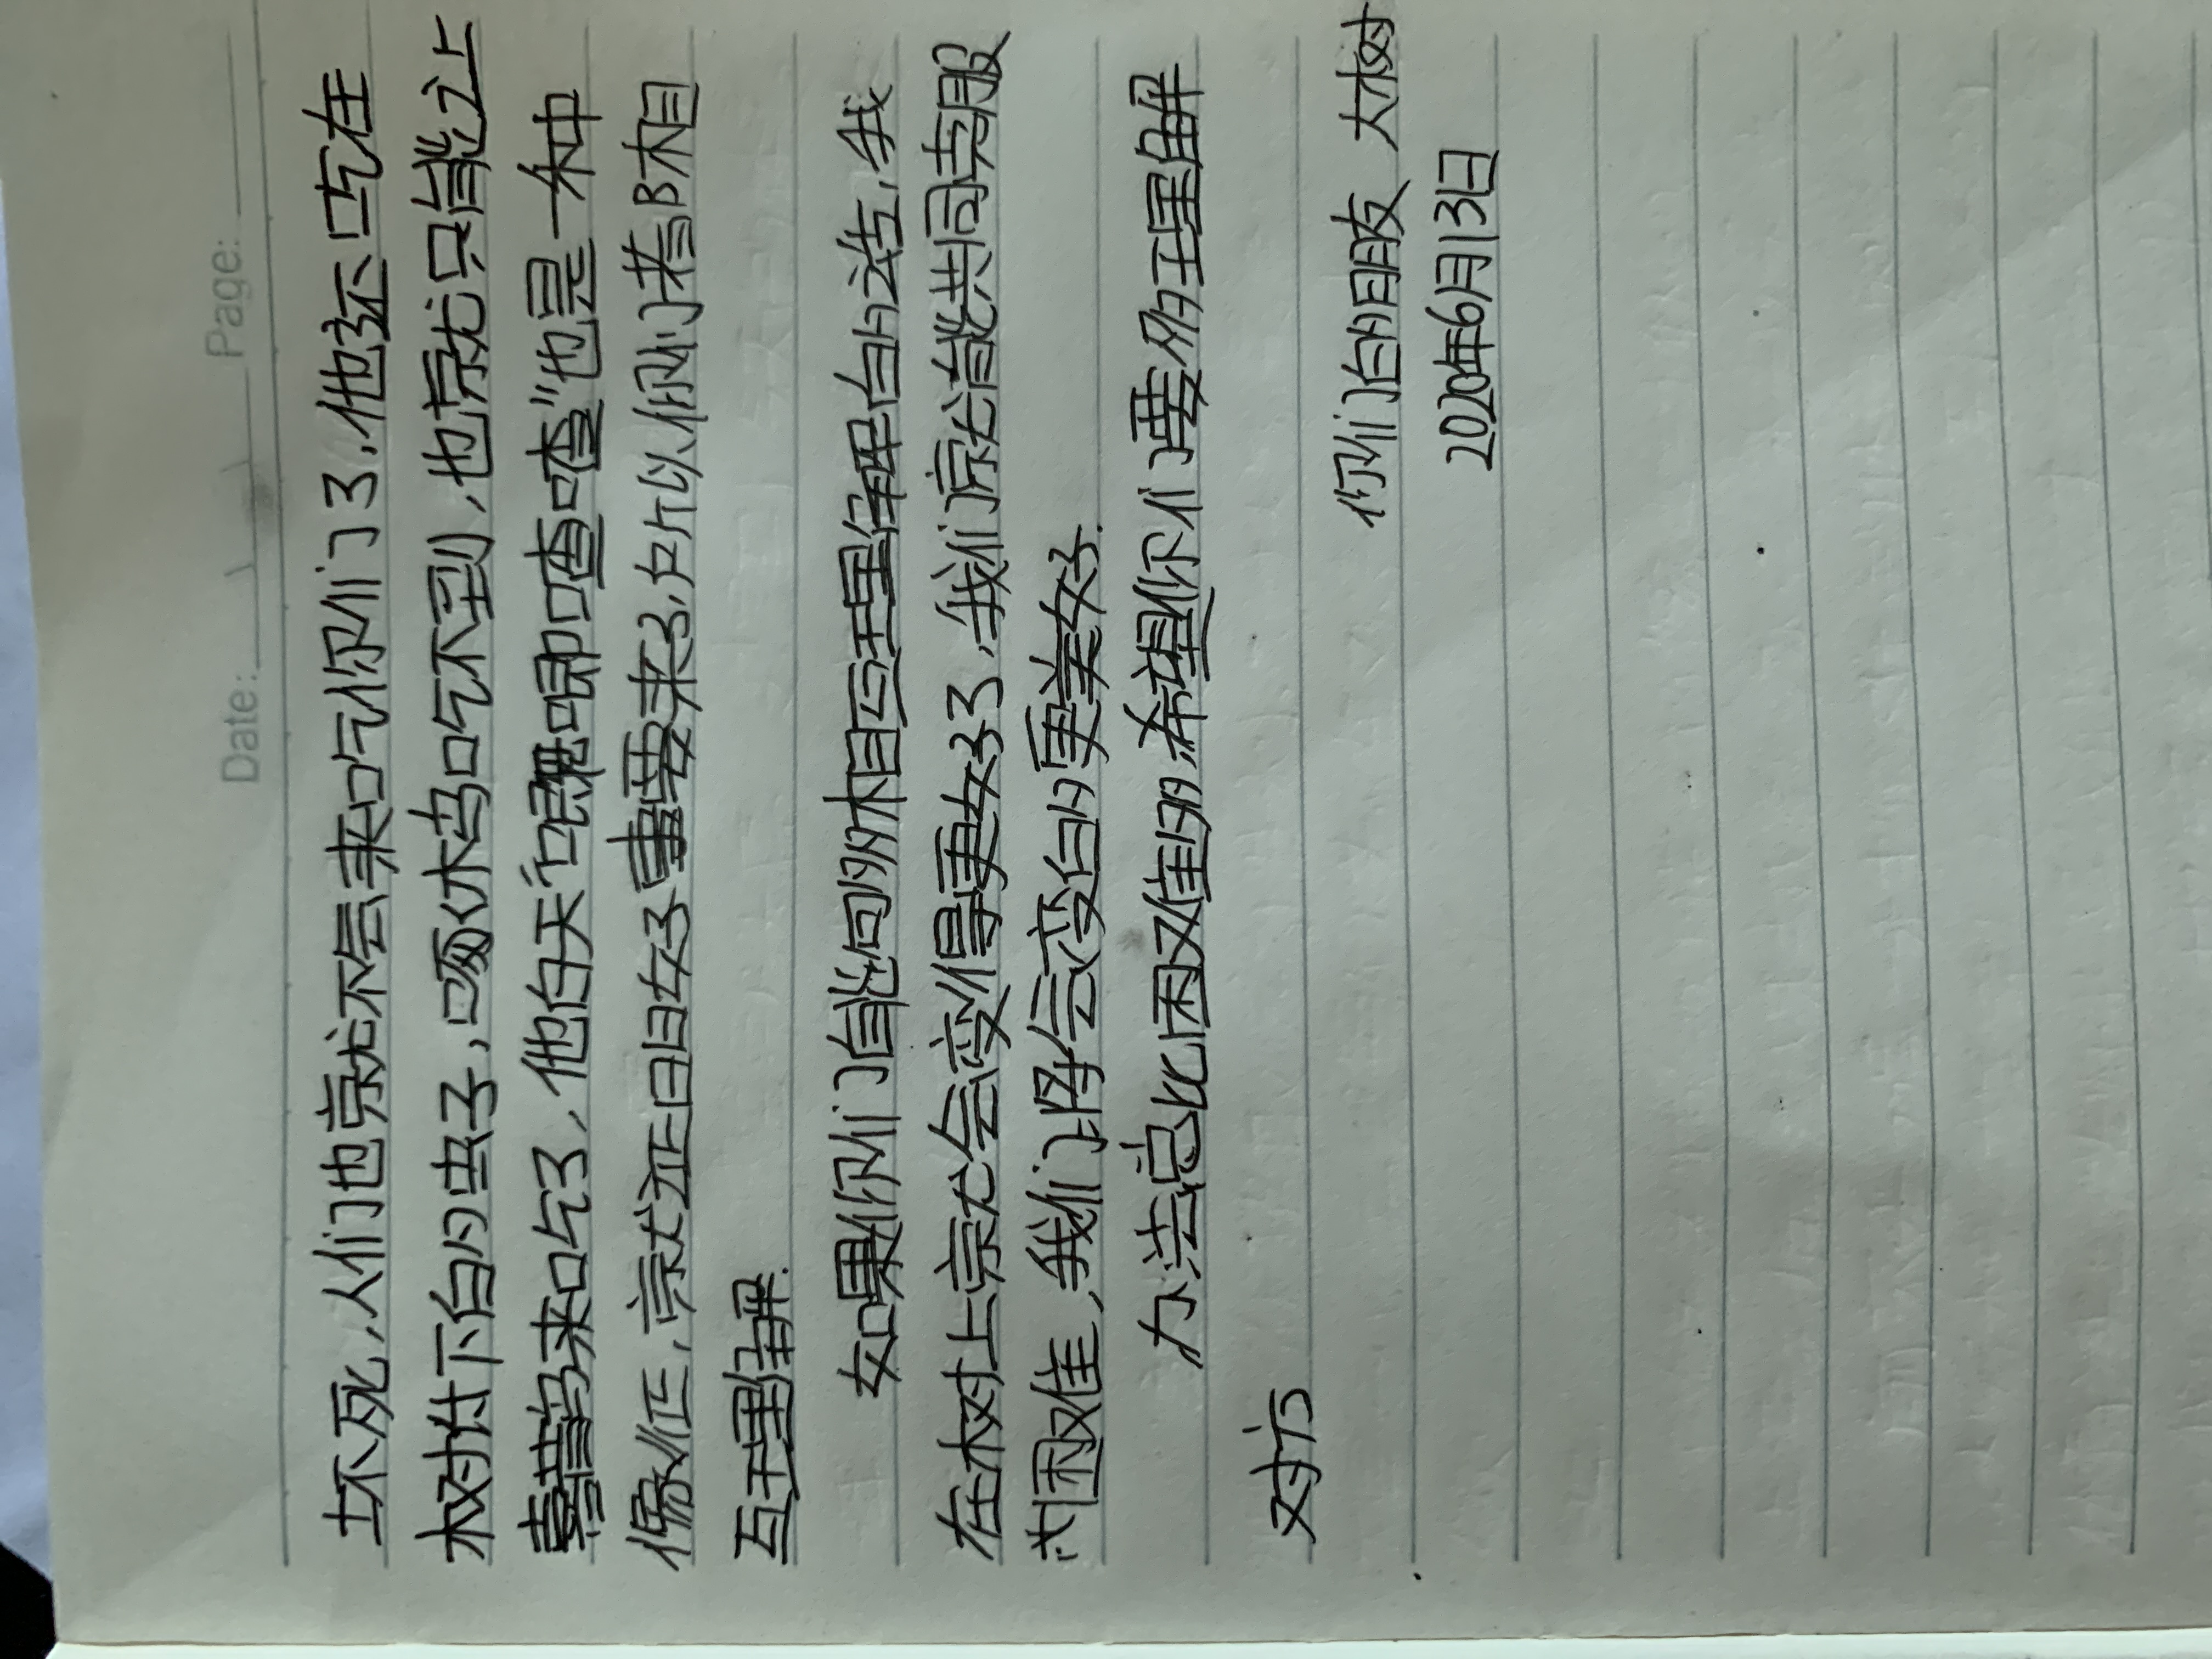 Date: Page:
坏死,人们也就不会来吃你们了.他还吃在
树付下的虫子,啄木鸟吃不到,也就只能让
喜鹊来吃了,他白天"叽叽喳喳"也是一种
像征,就证明好事要来了,所以你们都相
互理解.
如果你们能够相互理解的话,我
在树上就会变得更好了,我们就能共同克服
困难,我们将会变的更美好.
办法总比困难多,希望你们要多理解
对方
你们的朋友 大树
2020年6月13日